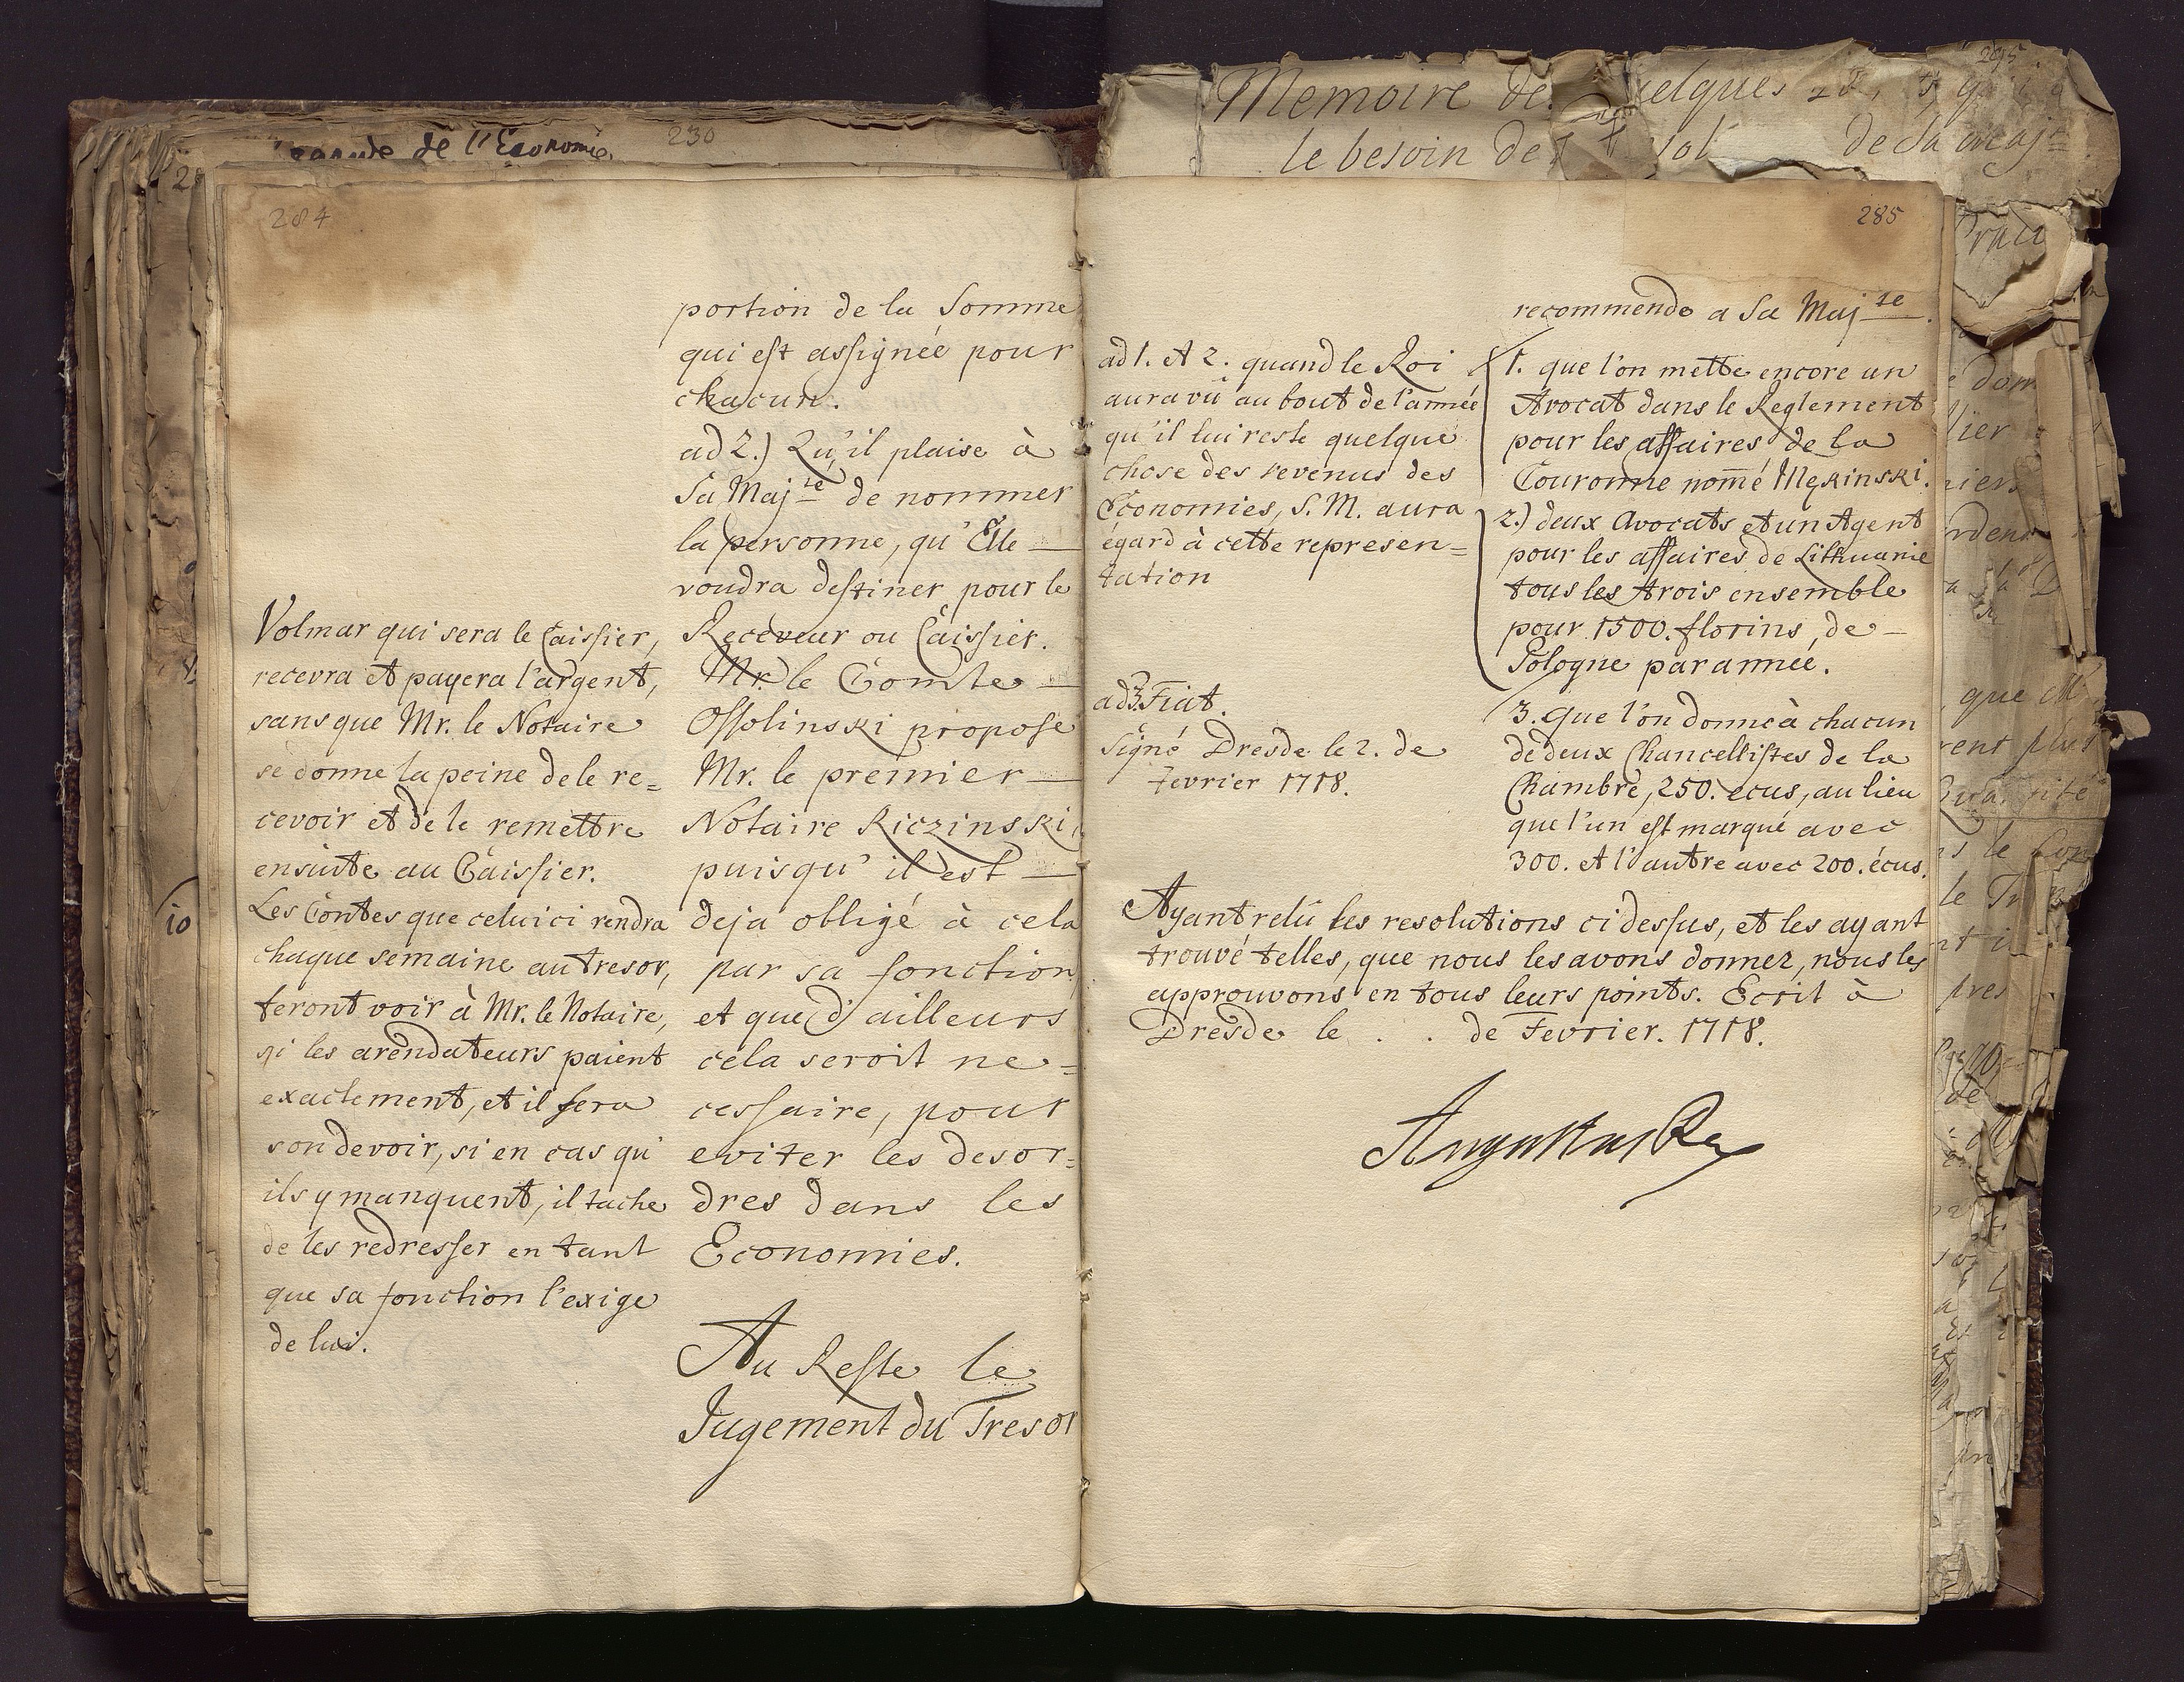 de l'Economie.
230
Memoire de
le besoin de
de Sa Maj.te
295
284
portion de la Somme
qui est assignée pour
chacun.
ad 2.) Qu'il plaise à
Sa Maj.te de nommer
la personne, qu'Elle
voudra destiner pour le
Receveur ou Caissier.
Mr. le Comte
Ossolinski propose
Mr. le premier
Notaire Riczinski
puisqu'il est
deja obligé à cela
par sa fonction
et que d'ailleurs
cela seroit ne=
cessaire, pour
eviter les desor=
dres dans les
Economies.
Au Reste le
Jugement du Tresor
Volmar qui sera le Caissier,
recevra et payera l'argent,
sans que Mr. le Notaire
se donne la peine de le re=
cevoir et de le remettre
ensuite au Caissier.
Les Contes que celuici rendra
chaque semaine au tresor,
feront voir à Mr. le Notaire,
si les arendateurs paient
exactement, et il fera
son devoir, si en cas qu'
ils y manquent, il tache
de les redresser en tant
que sa fonction l'exige
de lui.
10
285
recommende a Sa Maj.te
1. que l'on mette encore un
Avocat dans le Reglement
pour les affaires de la
Couronne nom̃é Mękinski.
2.) deux Avocats et un Agent
pour les affaires de Lithuanie
tous les trois ensemble
pour 1500. florins, de
Pologne par année.
3. que l'on donne à chacun
de deux Chancellistes de la
Chambre, 250. ecus, au lieu
que l'un est marqué avec
300. et l'autre avec 200. écus.
ad 1. et 2. quand le Roi
aura vû au bout de l'année
qu'il lui reste quelque
chose des revenus des
Economies, S. M. aura
égard à cette represen=
tation
ad 3. Fiat.
Signé Dresde le 2. de
Fevrier 1718.
Ayant relû les resolutions ci dessus, et les ayant
trouvé telles, que nous les avons donnez, nous les
approuvons en tous leurs points. Ecrit à
Dresde le . . de Fevrier. 1718.
Augustus Rex